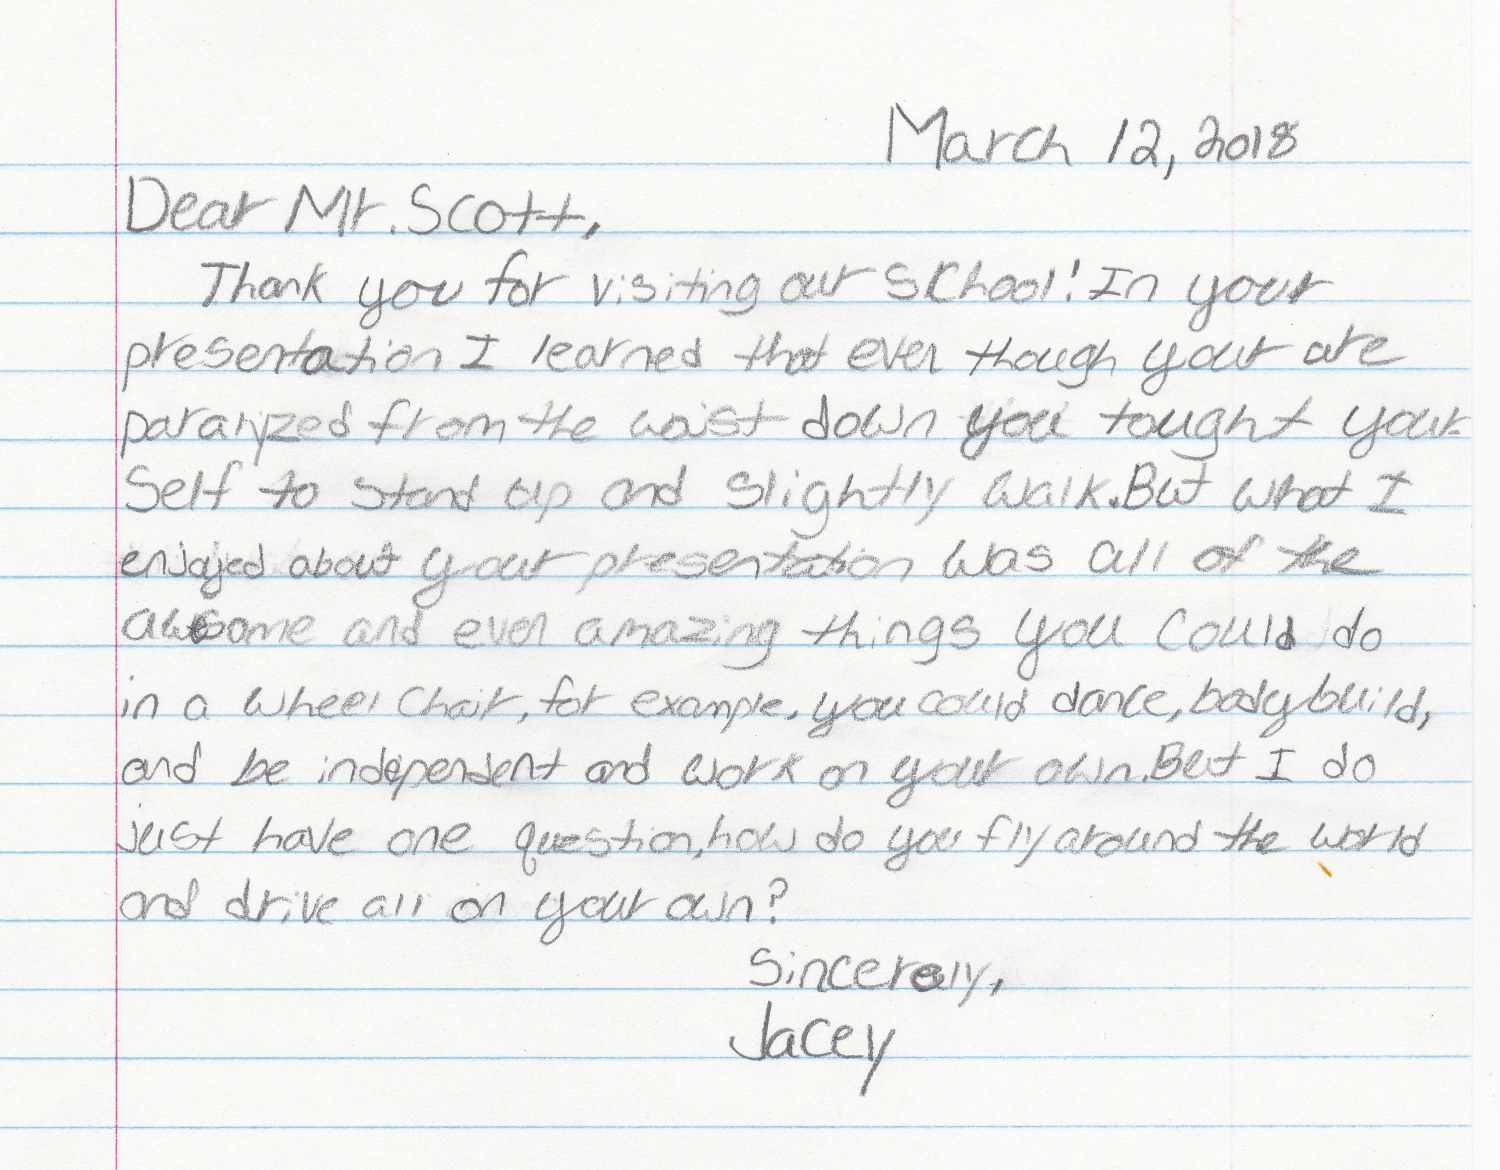 March 12, 2018
Dear Mr. Scott,
Thank you for visiting our School! In your
presentation I learned that even though your are
pararyzed from the waist down you tought your
Self to stand up and slightly walk. But what I
enjoyed about your presentation was all of the
awesome and even amazing things you Could do
in a wheel Chair, for example, you could dance, body build,
and be independent and work on your own. But I do
just have one question, how do you fly around the world
and drive all on your own?
Sincerely,
Jacey